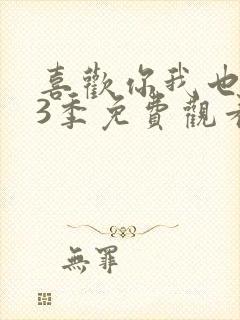 喜歡你我也
3季免費觀看
無罪